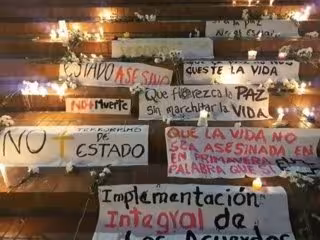 la paz
ESTADO ASESINO
QUESTE LA VIDA
NO + Muerte
Que florezca la PAZ
Sin marchitar la VIDA
NO + TERRORISMO DE
ESTADO
QUE LA VIDA NO
SEA ASESINADA EN
EN PRIMAVERA
PALABRA QUE SI
Implementación
Integral de
Los Acuerdos